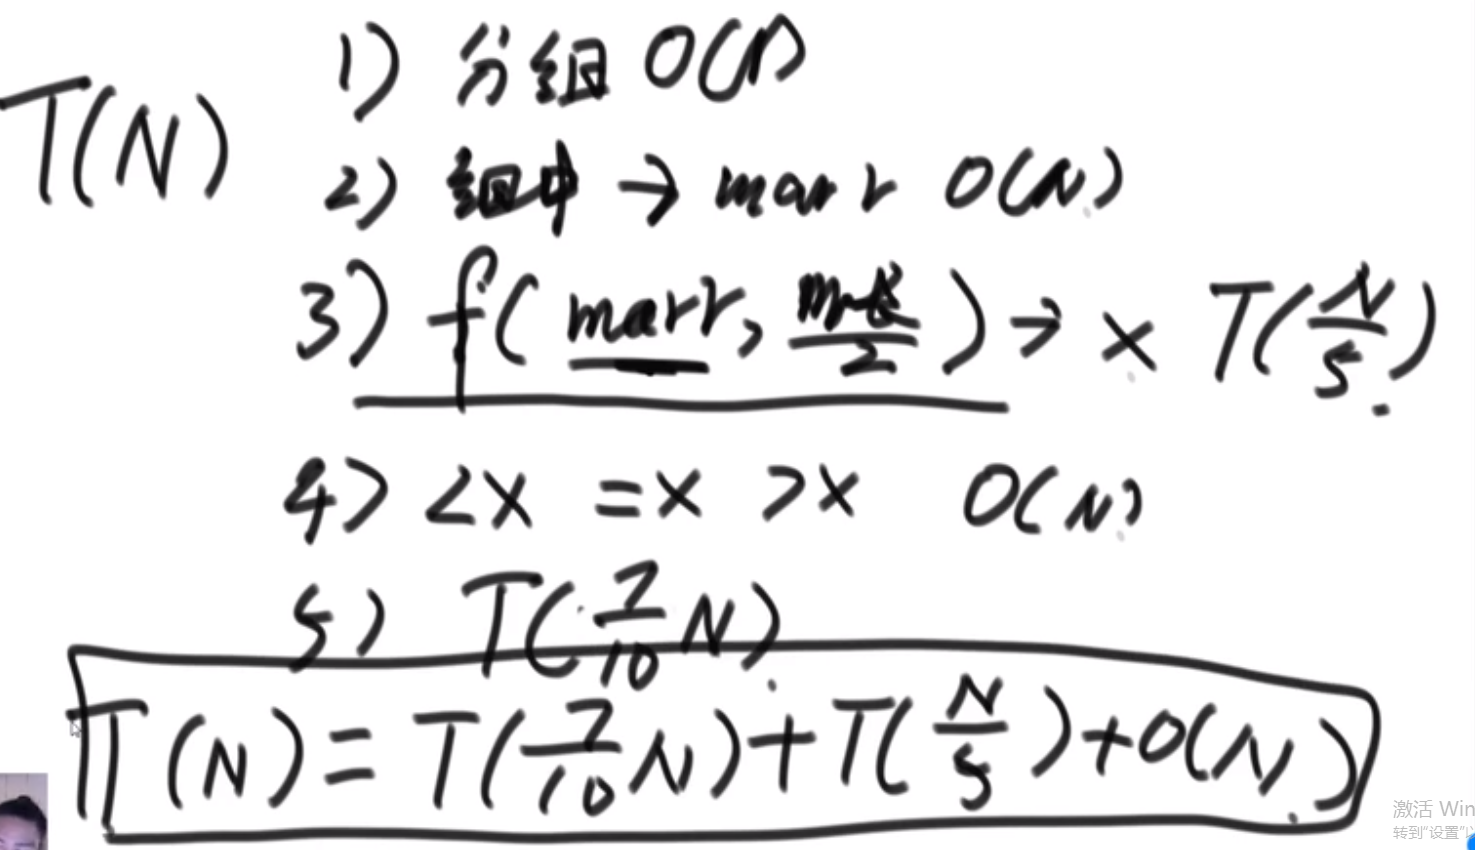 T(N)
1) 分组 O(1)
2) 组中 → marr O(N)
3) f( marr, /2 ) → x T(N/5)
4) <x =x >x O(N)
5) T(7/10 N)
T(N) = T(7/10 N) + T(N/5) + O(N)
激活 Win
转到"设置"以